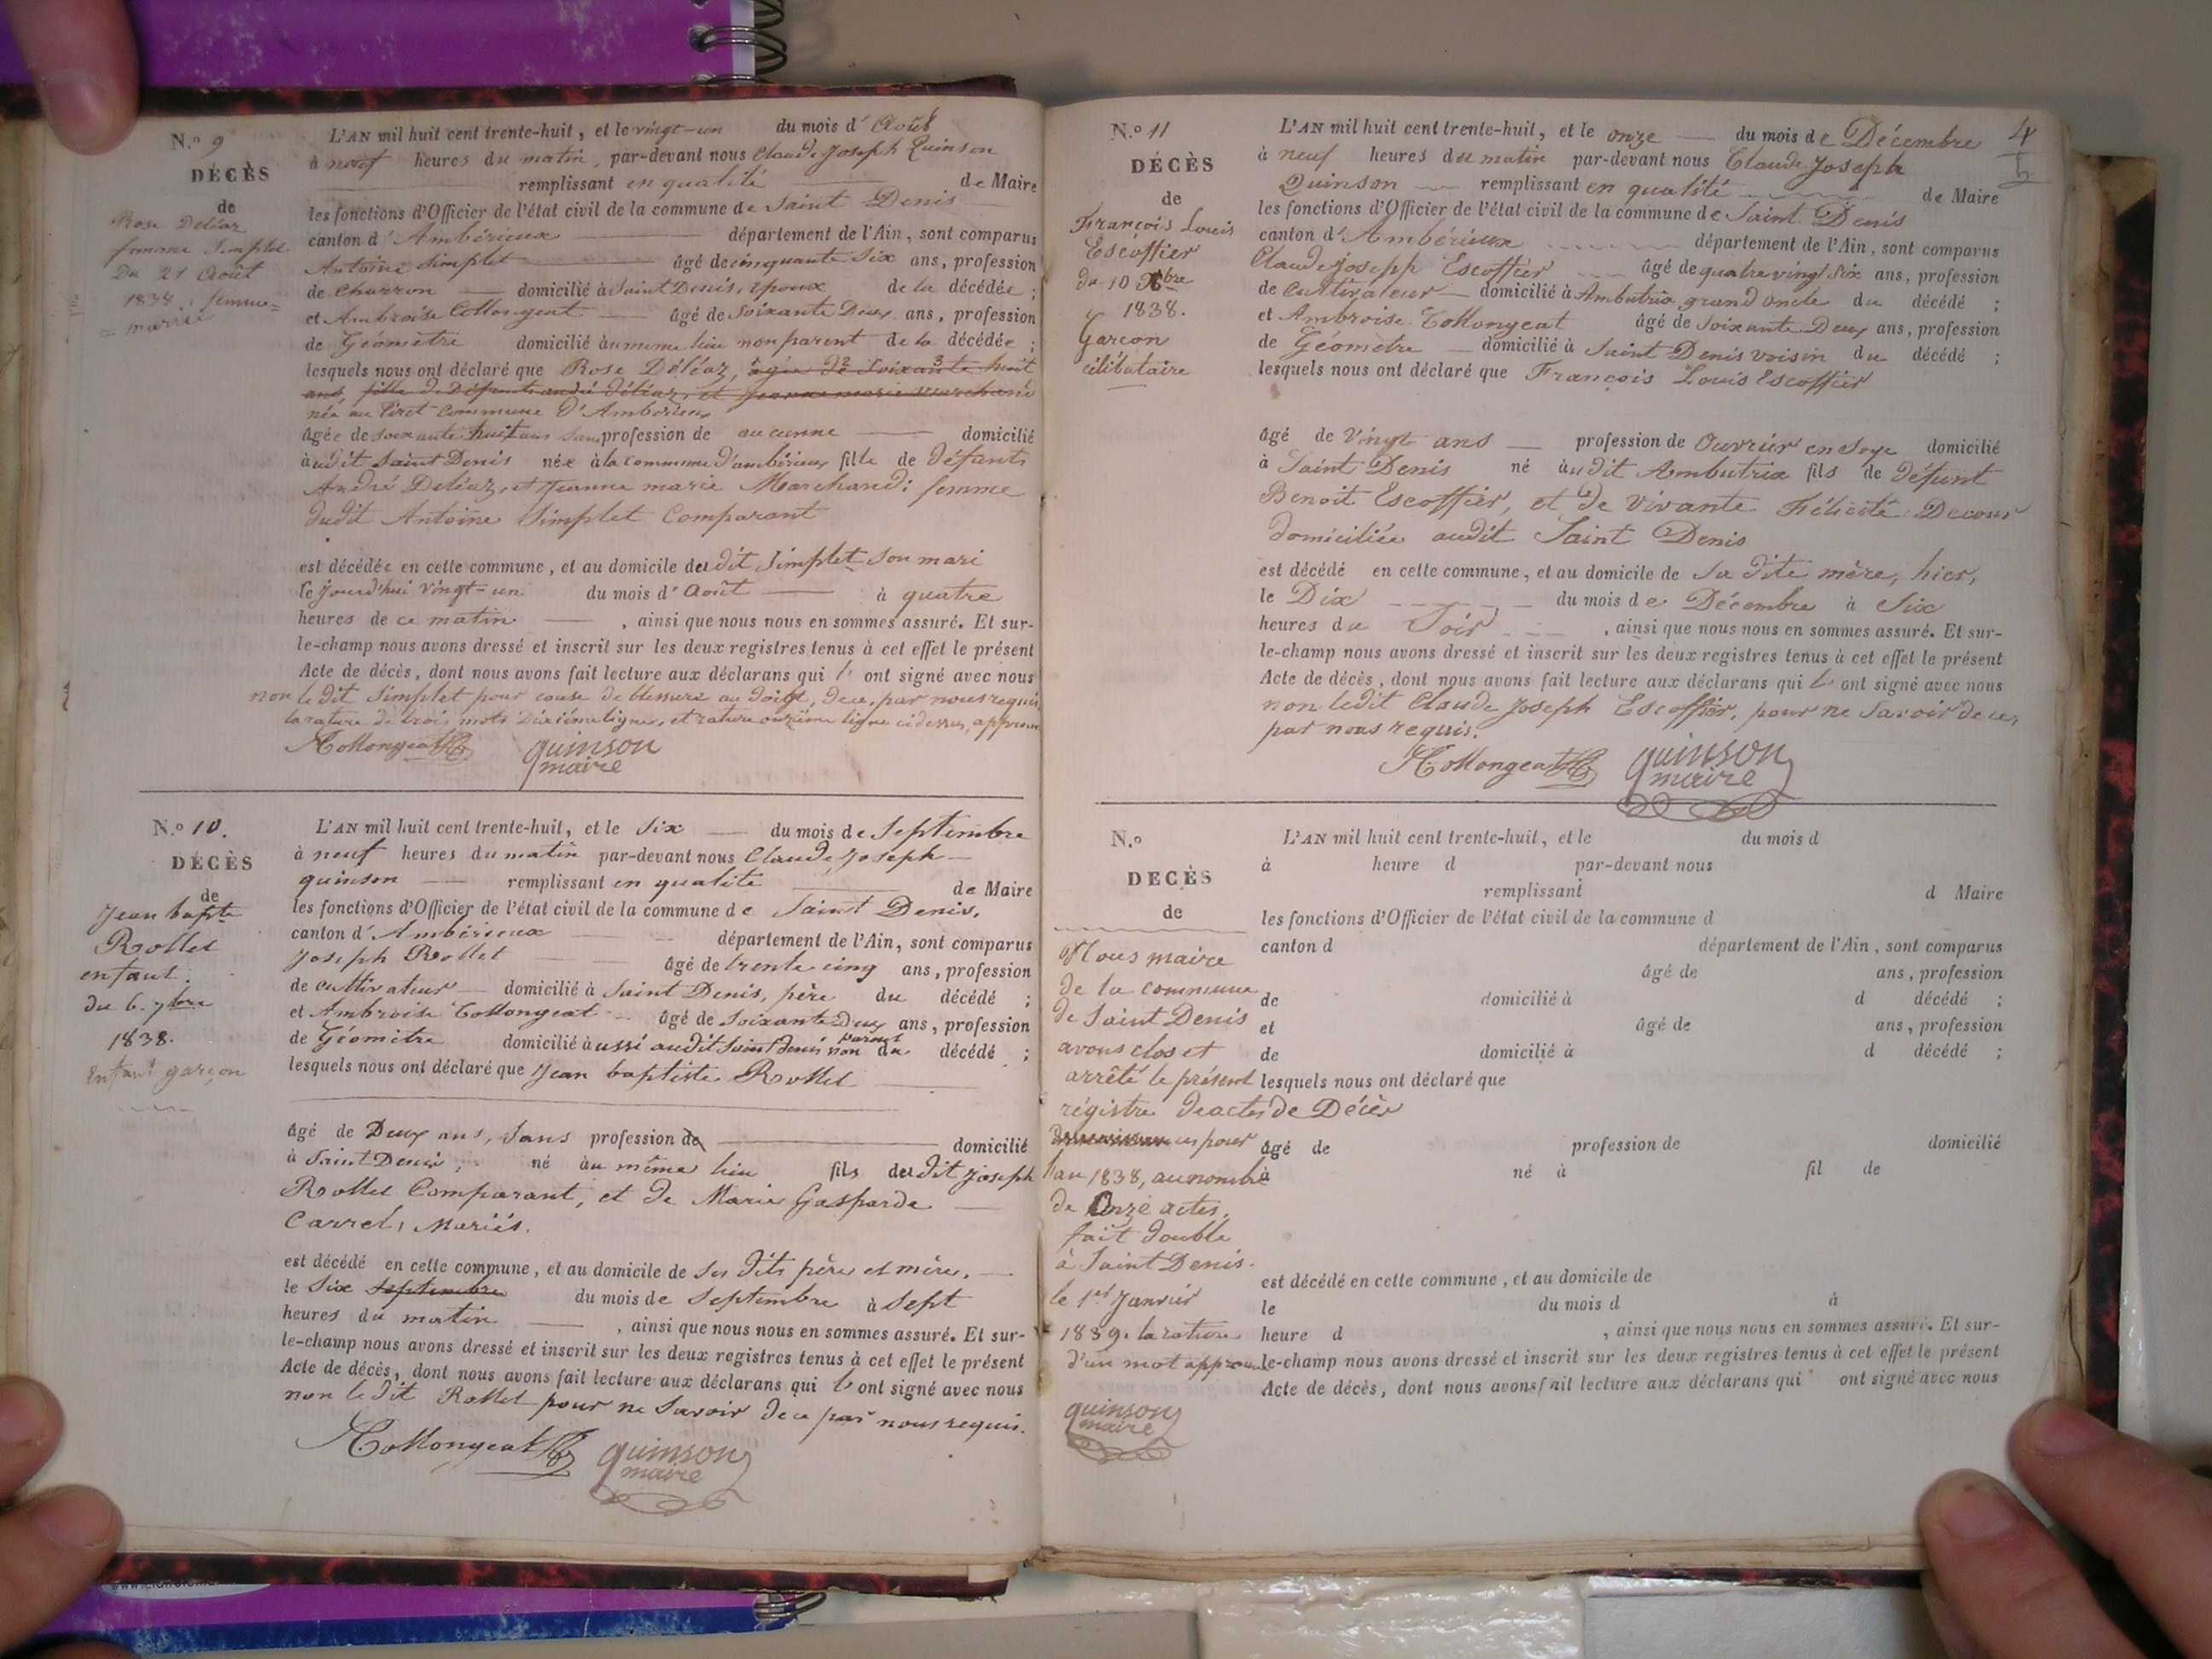 N.º 9
DÉCÈS
de
Rose Deléaz
femme Simplet
Du 21 Août
1838. femme =
= mariée
L'AN mil huit cent trente-huit, et le vingt-un du mois d'Août
à neuf heures du matin, par-devant nous Claude Joseph Quinson
remplissant en qualité de Maire
les fonctions d'Officier de l'état civil de la commune de Saint Denis
canton d'Ambérieux département de l'Ain, sont comparus
Antoine Simplet âgé de cinquante Six ans, profession
de Charron domicilié à Saint Denis, époux de la décédée ;
et Ambroise Collongeat âgé de Soixante Deux ans, profession
de Géomètre domicilié au même lieu non parent de la décédée ;
lesquels nous ont déclaré que Rose Déléaz, âgée de Soixante huit
ans, fille de Défunts andré déléaz, et jeanne marie marchand
née au Tiret Commune d'Ambérieux
âgée de soixante huit ans Sans profession de aucunne domicilié
à udit Saint Denis née à la commune d'ambérieux fille de défunts
André Deléaz, et Jeanne marie Marchand; femme
dudit Antoine Simplet Comparant
est décédée en cette commune, et au domicile du dit Simplet Son mari
le jourd'hui vingt-un du mois d'Août à quatre
heures de ce matin, ainsi que nous nous en sommes assuré. Et sur-
le-champ nous avons dressé et inscrit sur les deux registres tenus à cet effet le présent
Acte de décès, dont nous avons fait lecture aux déclarans qui l' ont signé avec nous
non le dit Simplet pour cause de blessure au doigt, de ce, par nous requis
la rature de trois mots Dixième ligne, et rature onzième ligne ci dessus, approuvé
Collongeat quinson
maire
N.º 10.
DÉCÈS
de
Jean bapte
Rollet
enfant.
du 6. 7bre
1838.
Enfant garçon
L'AN mil huit cent trente-huit, et le Six du mois de Septembre
à neuf heures du matin par-devant nous Claude Joseph
quinson remplissant en qualité de Maire
les fonctions d'Officier de l'état civil de la commune de Saint Denis,
canton d'Ambérieux département de l'Ain, sont comparus
Joseph Rollet âgé de trente cinq ans, profession
de cultivateur domicilié à Saint Denis, père du décédé ;
et Ambroise Collongeat âgé de Soixante Deux ans, profession
de Géomètre domicilié à ussi audit Saint denis non parent du décédé ;
lesquels nous ont déclaré que Jean baptiste Rollet
âgé de Deux ans, Sans profession de domicilié
à Saint Denis, né au même lieu fils du dit Joseph
Rollet Comparant, et de Marie Gasparde
Carrel, Mariés.
est décédé en cette commune, et au domicile de Ses Dits père et mère,
le Six Septembre du mois de Septembre à Sept
heures du matin, ainsi que nous nous en sommes assuré. Et sur-
le-champ nous avons dressé et inscrit sur les deux registres tenus à cet effet le présent
Acte de décès, dont nous avons fait lecture aux déclarans qui l' ont signé avec nous
non le dit Rollet pour ne Savoir de ce par nous requis.
Collongeat quinson
maire
4
N.º 11
DÉCÈS
de
François Louis
Escoffier
du 10 Xbre
1838.
Garçon
célibataire
L'AN mil huit cent trente-huit, et le onze du mois de Décembre
à neuf heures du matin par-devant nous Claude Joseph
Quinson remplissant en qualité de Maire
les fonctions d'Officier de l'état civil de la commune de Saint Denis
canton d'Ambérieux département de l'Ain, sont comparus
Claude Joseph Escoffier âgé de quatre vingt Six ans, profession
de Cultivateur domicilié à Ambutrix grand oncle du décédé ;
et Ambroise Collongeat âgé de Soixante Deux ans, profession
de Géomètre domicilié à Saint Denis voisin du décédé ;
lesquels nous ont déclaré que François Louis Escoffier
âgé de Vingt ans profession de Ouvrier en Soye domicilié
à Saint Denis né àudit Ambutrix fils de défunt
Benoit Escoffier, et de Vivante Félicité Decour
domiciliée audit Saint Denis
est décédé en cette commune, et au domicile de Sa dite mère, hier,
le Dix du mois de Décembre à Six
heures du Soir, ainsi que nous nous en sommes assuré. Et sur-
le-champ nous avons dressé et inscrit sur les deux registres tenus à cet effet le présent
Acte de décès, dont nous avons fait lecture aux déclarans qui l' ont signé avec nous
non ledit Claude Joseph Escoffier, pour ne Savoir de ce,
par nous requis.
Collongeat quinson
maire
N.º
DÉCÈS
de
Nous maire
de la commune
de Saint Denis
avons clos et
arrêté le présent
régistre de actes de Décès
pour
l'an 1838, au nombre
de Onze actes,
fait double
à Saint Denis.
le 1er Janvier
1839. la rature
d'un mot approuvé
quinson
maire
L'AN mil huit cent trente-huit, et le du mois d
à heure d par-devant nous
remplissant d Maire
les fonctions d'Officier de l'état civil de la commune d
canton d département de l'Ain, sont comparus
âgé de ans, profession
de domicilié à d décédé ;
et âgé de ans, profession
de domicilié à d décédé ;
lesquels nous ont déclaré que
âgé de profession de domicilié
à né à fil de
est décédé en cette commune, et au domicile de
le du mois d à
heure d , ainsi que nous nous en sommes assuré. Et sur-
le-champ nous avons dressé et inscrit sur les deux registres tenus à cet effet le présent
Acte de décès, dont nous avons fait lecture aux déclarans qui ont signé avec nous